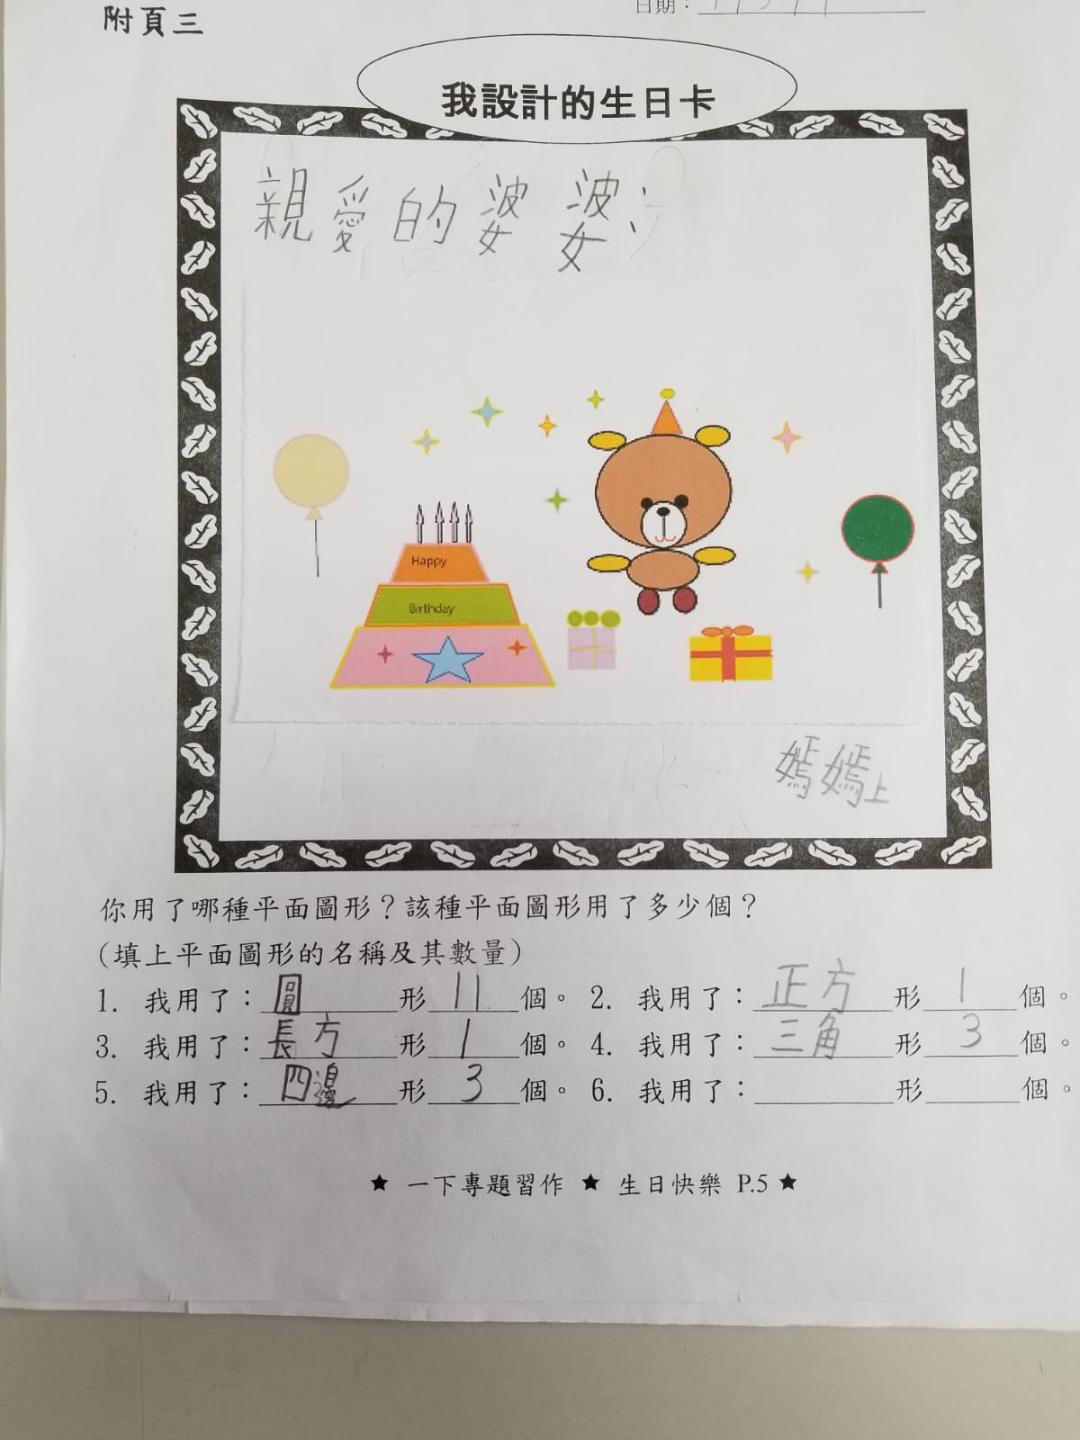 附頁三
日期：
我設計的生日卡
親愛的婆婆：
Happy
Birthday
嫣嫣上
你用了哪種平面圖形？該種平面圖形用了多少個？
(填上平面圖形的名稱及其數量)
1. 我用了：圓形 11 個。 2. 我用了：正方形 1 個。
3. 我用了：長方形 1 個。 4. 我用了：三角形 3 個。
5. 我用了：四邊形 3 個。 6. 我用了：______形______個。
★ 一下專題習作 ★ 生日快樂 P.5 ★